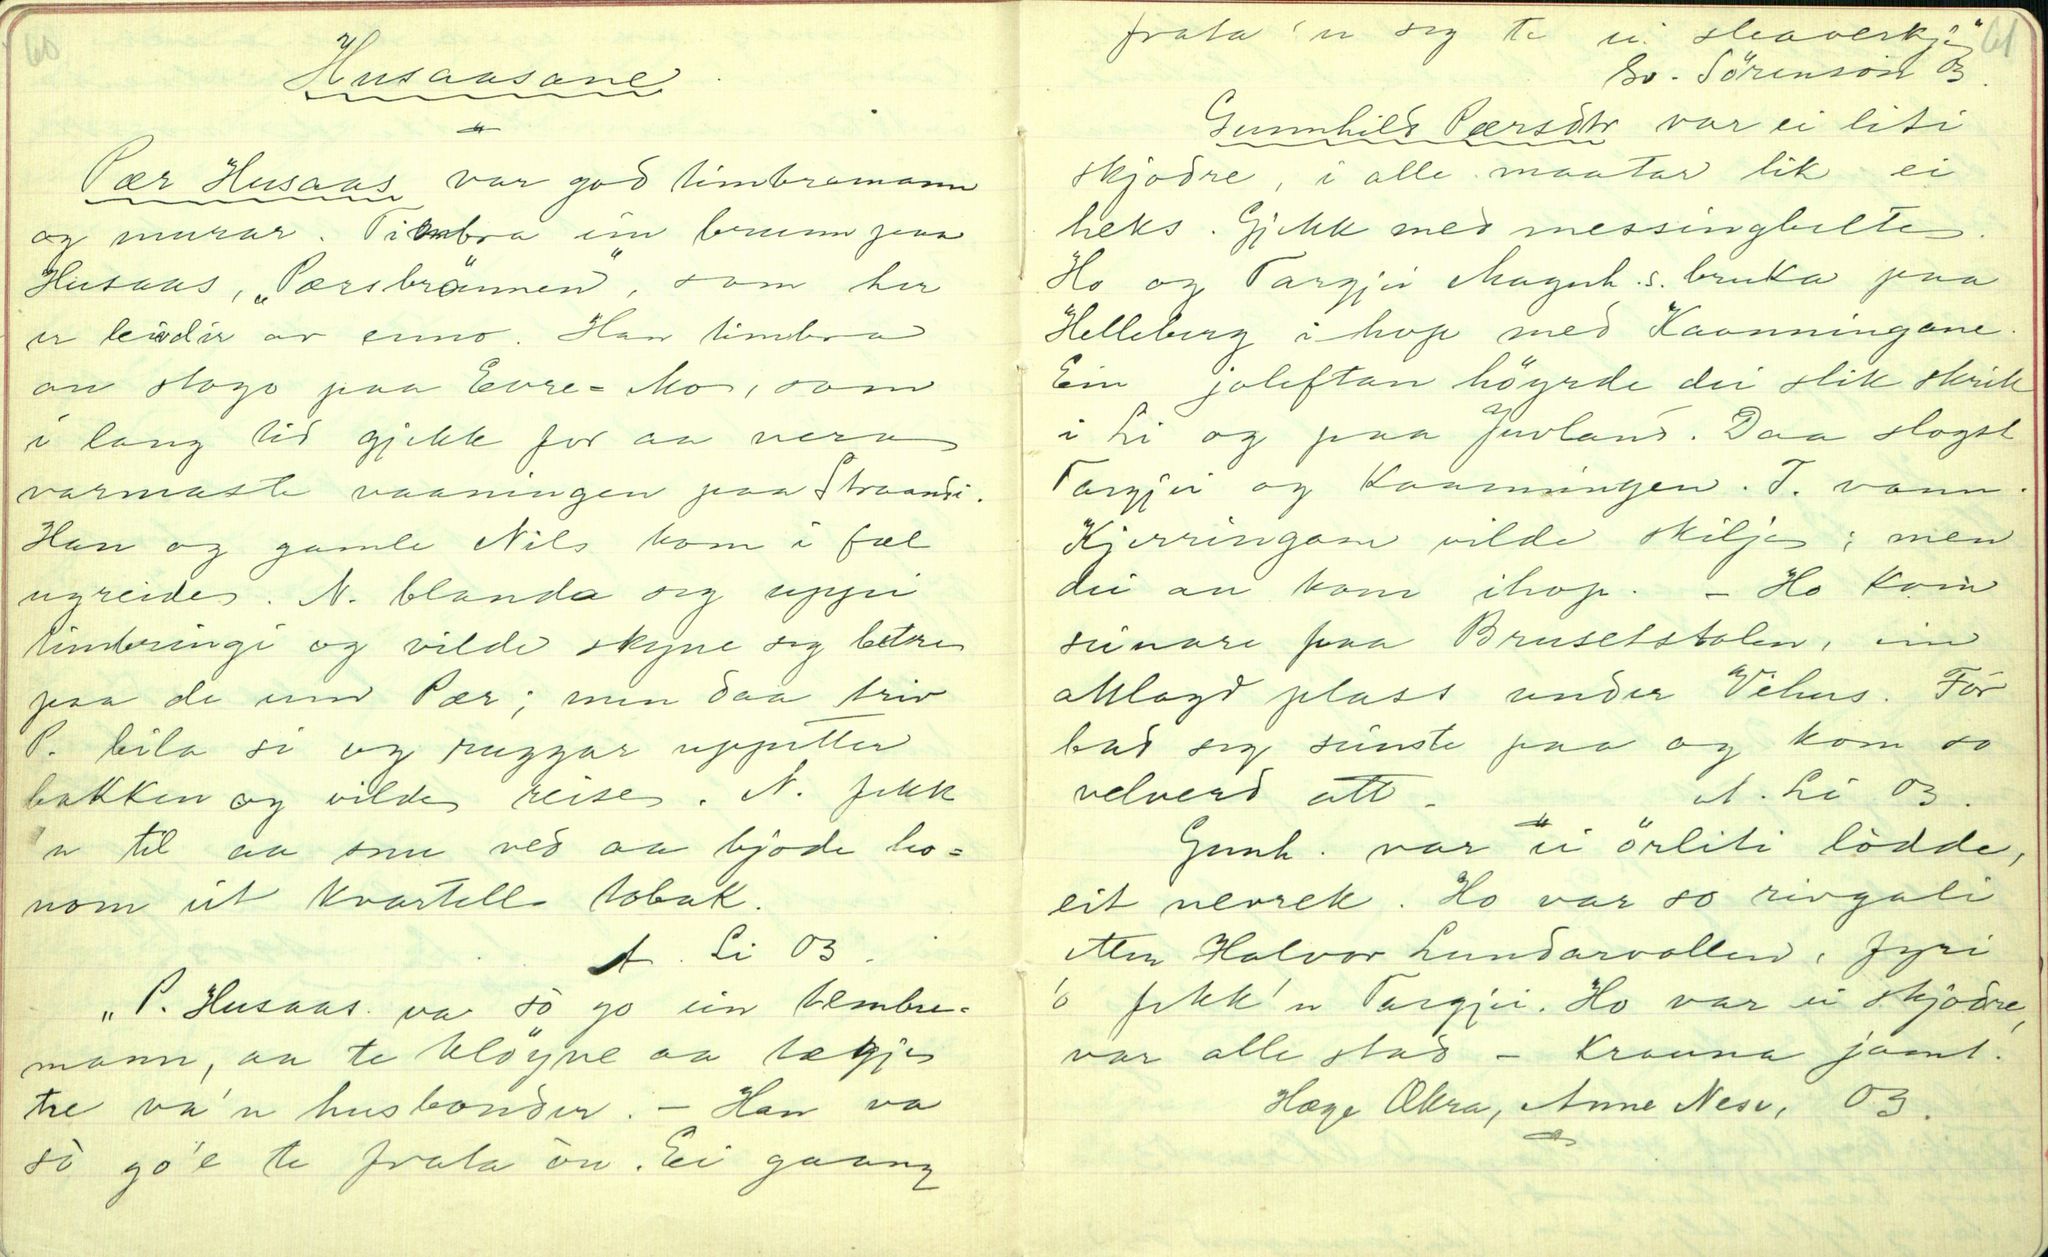 60
Husaasane
Pær Husaas var god timbramann
og murar. Timbra ein brunn paa
Husaas, „Pærsbrünnen", som her
er leivdir av enno. Han timbra
an stogo paa Evre-Mo, som
i lang tid gjekk for aa vera
varmaste vaaningen paa Straandi.
Han og gamle Nils kom i fæl
ugreide. N. blanda seg uppi
timbringi og vilde skyne seg betre
paa de enn Pær; men daa treiv
P. bila si og ruggar uppetter
bakken og vilde reise. N. fekk
'n til aa snu ved aa bjode ho=
nom eit kvartell tobak.
A. Li 03.
„P. Husaas va so go ein tembre=
mann, aa te kløyve aa tægje
tre va'n husbonder. – Han va
so go'e te frata òn. Ei gaang
61
frata 'n seg te ei sleaverkjei"
Sv. Sörenson 03.
Gunnhild Pærsdtr var ei liti
skjodre, i alle maatar lik ei
heks. Gjekk med messingbelte.
Ho og Targjei Magnh. s. bruka paa
Helleberg i hop med Kaanningane.
Ein joleftan höyrde dei slik skrik
i Li og paa Juvland. Daa slogst
Targjei og Kaanningen. T. vann.
Kjerringane vilde skilje; men
dei au kom ihop. – Ho kom
seinare paa Brusetstolen, ein
attlagd plass under Vehus. Fór
bad seg seinste paa og kom so
velverd att. A. Li 03.
Gunh. var ei örliti lòdde,
eit nevrek. Ho var so rivgali
etter Halvor Lundarvollen, fyri
'o fekk 'n Targjei. Ho var ei skjodre,
var alle stad – krauna jamt.
Hæge Økra, Anne Nesi, 03.